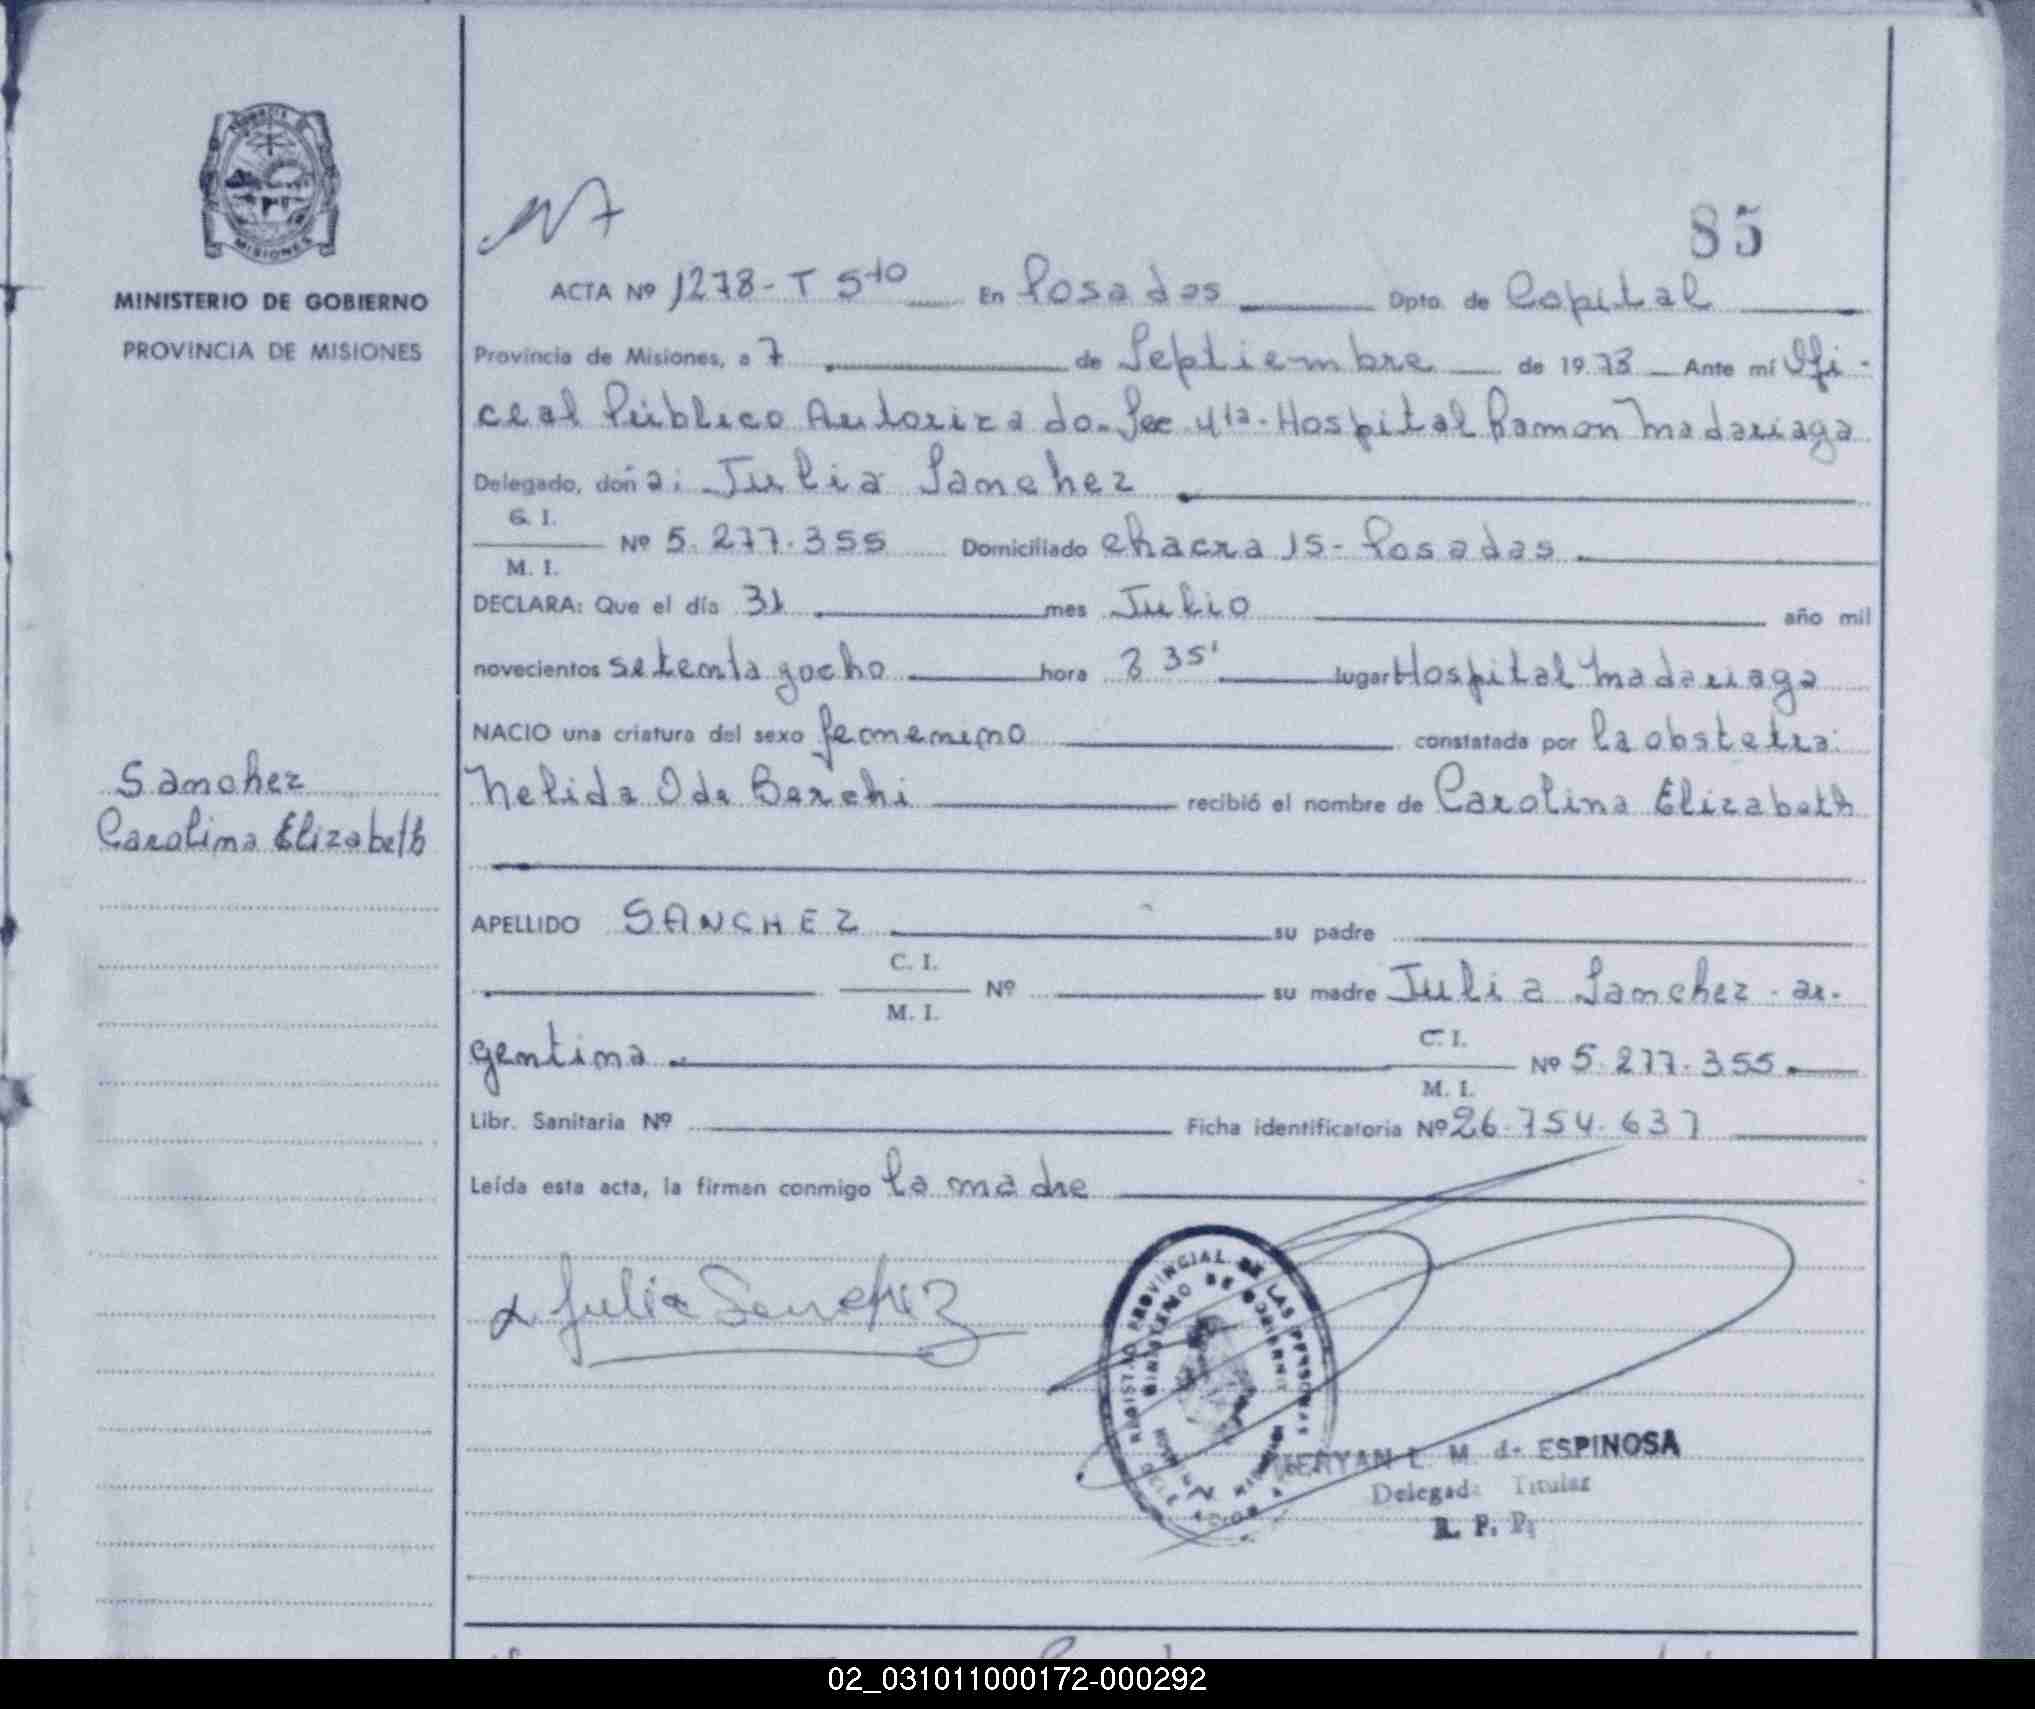 MISIONES
MINISTERIO DE GOBIERNO
PROVINCIA DE MISIONES
85
ACTA Nº 1278-T 5to En Posadas Dpto. de Capital
Provincia de Misiones, a 7 de Septiembre de 1978 Ante mí Ofi-
cial Público Autorizado. Sec 4ta-Hospital Ramon Madariaga
Delegado, doña: Julia Sanchez
C. I.
M. I.
Nº 5.277.355 Domiciliado chacra 15- Posadas
DECLARA: Que el día 31 mes Julio año mil
novecientos setenta yocho hora 35' lugar Hospital Madariaga
NACIO una criatura del sexo femenino constatada por la obstetra:
Nelida Oda Barchi recibió el nombre de Carolina Elizabeth
Sanchez
Carolina Elizabeth
APELLIDO SANCHEZ su padre
C. I.
M. I.
Nº su madre Julia Sanchez - ar-
gentina
C. I.
M. I.
Nº 5.277.355
Libr. Sanitaria Nº Ficha identificatoria Nº 26.754.637
Leída esta acta, la firman conmigo la madre
Julia Sanchez
REGISTRO PROVINCIAL DE LAS PERSONAS
MINISTERIO DE GOBIERNO
L. M. de ESPINOSA
Delegada Titular
R. P. P.
02_031011000172-000292